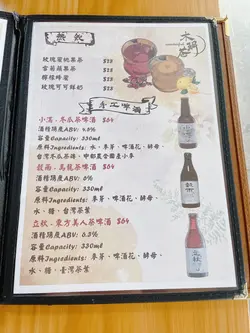 熱飲
玫瑰蜜桃果茶 $28
雪菊蘋果茶 $28
檸檬蜂蜜 $28
玫瑰可可鮮奶
手工啤酒
小滿·冬瓜茶啤酒 $64
酒精強度ABV: 4.8%
容量Capacity: 330ml
原料Ingredients: 水、麥芽、啤酒花、酵母、
台灣冬瓜茶磚
穀雨·烏龍茶啤酒 $64
酒精強度ABV: 6%
容量Capacity: 330ml
原料Ingredients: 麥芽、啤酒花、酵母、
水、糖、台灣茶葉
立秋·東方美人茶啤酒 $64
酒精強度ABV: 6.3%
容量Capacity: 330ml
原料Ingredients: 麥芽、啤酒花、酵母、
水、糖、臺灣茶葉